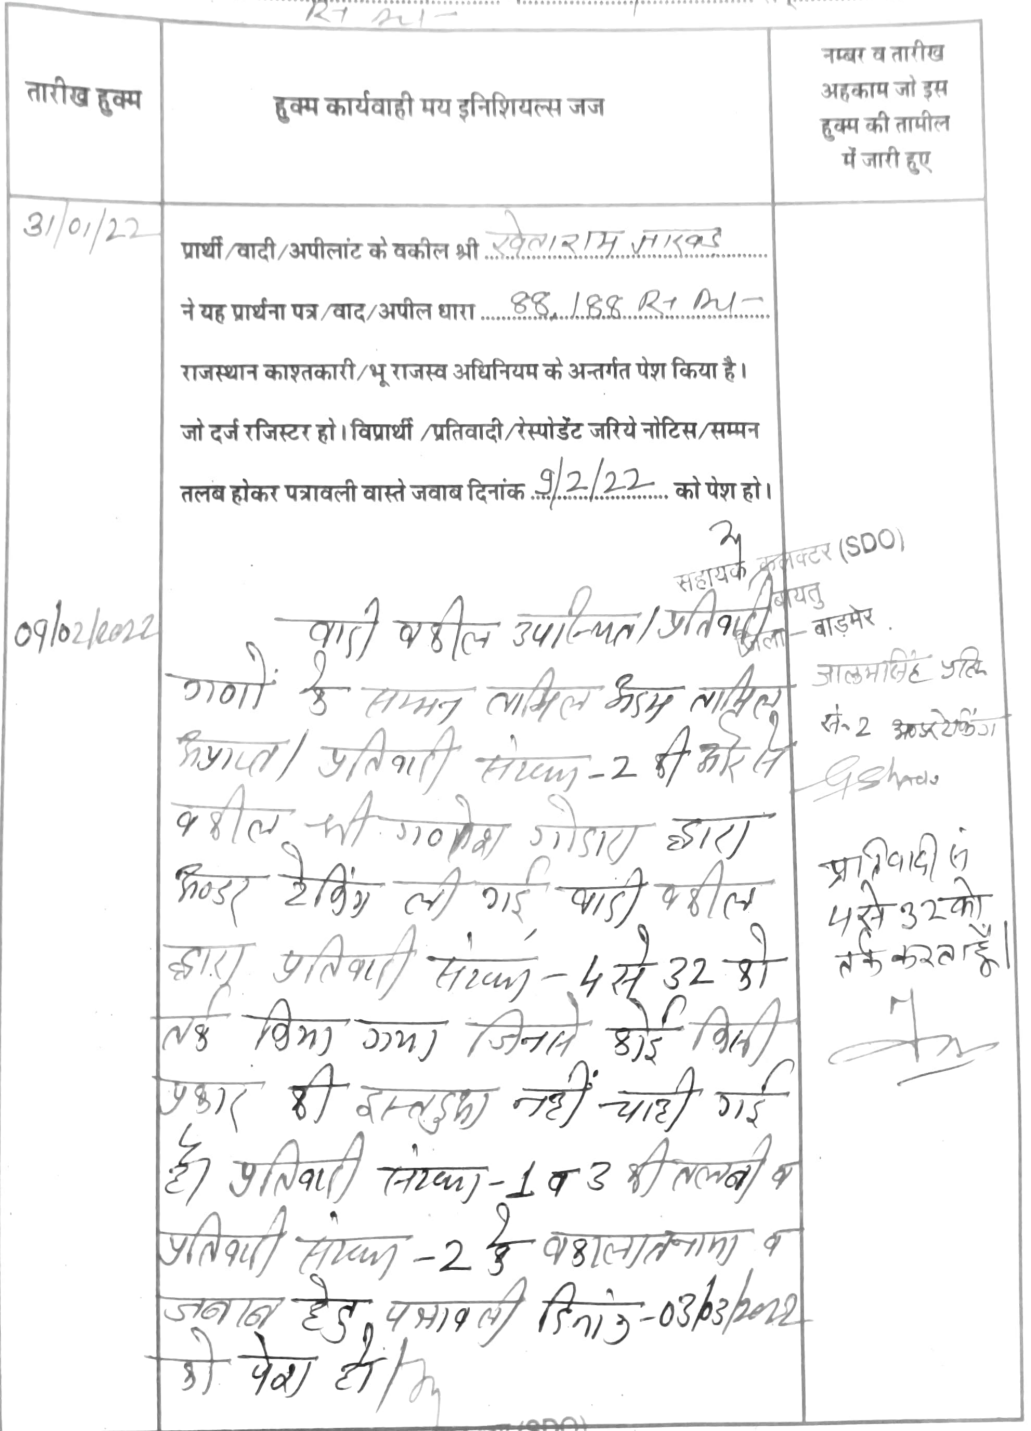 R+ Au-
तारीख हुक्म
हुक्म कार्यवाही मय इनिशियल्स जज
नम्बर व तारीख
अहकाम जो इस
हुक्म की तामील
में जारी हुए
31/01/22
प्रार्थी/वादी/अपीलांट के वकील श्री खेताराम
ने यह प्रार्थना पत्र/वाद/अपील धारा 88, 188 R+ Au-
राजस्थान काश्तकारी/भू राजस्व अधिनियम के अन्तर्गत पेश किया है।
जो दर्ज रजिस्टर हो। विप्रार्थी /प्रतिवादी/रेस्पोडेंट जरिये नोटिस/सम्मन
तलब होकर पत्रावली वास्ते जवाब दिनांक 9/2/22 को पेश हो।
सहायक कलक्टर (SDO)
बायतु
जिला - बाड़मेर
09/02/2022
वादी वकील उपस्थित। प्रतिवादी
गणों के सम्मन तामिल अदम तामिल
अप्राप्त। प्रतिवादी संख्या-2 की ओर से
वकील श्री गणेश गोदारा द्वारा
अण्डर टेकिंग ली गई वादी वकील
द्वारा प्रतिवादी संख्या-4 से 32 को
तर्क किया गया जिनसे कोई किसी
प्रकार की इस्तदुआ नहीं चाही गई
है। प्रतिवादी संख्या-1 व 3 की तलबी व
प्रतिवादी संख्या-2 के वकालातनामा व
जवाब हेतु पत्रावली दिनांक-03/03/2022
को पेश हो।
जालमसिंह प्रति
सं-2 अण्डरटेकिंग
प्रतिवादी सं
4 से 32 को
तर्क करता हूँ।
(SDO)